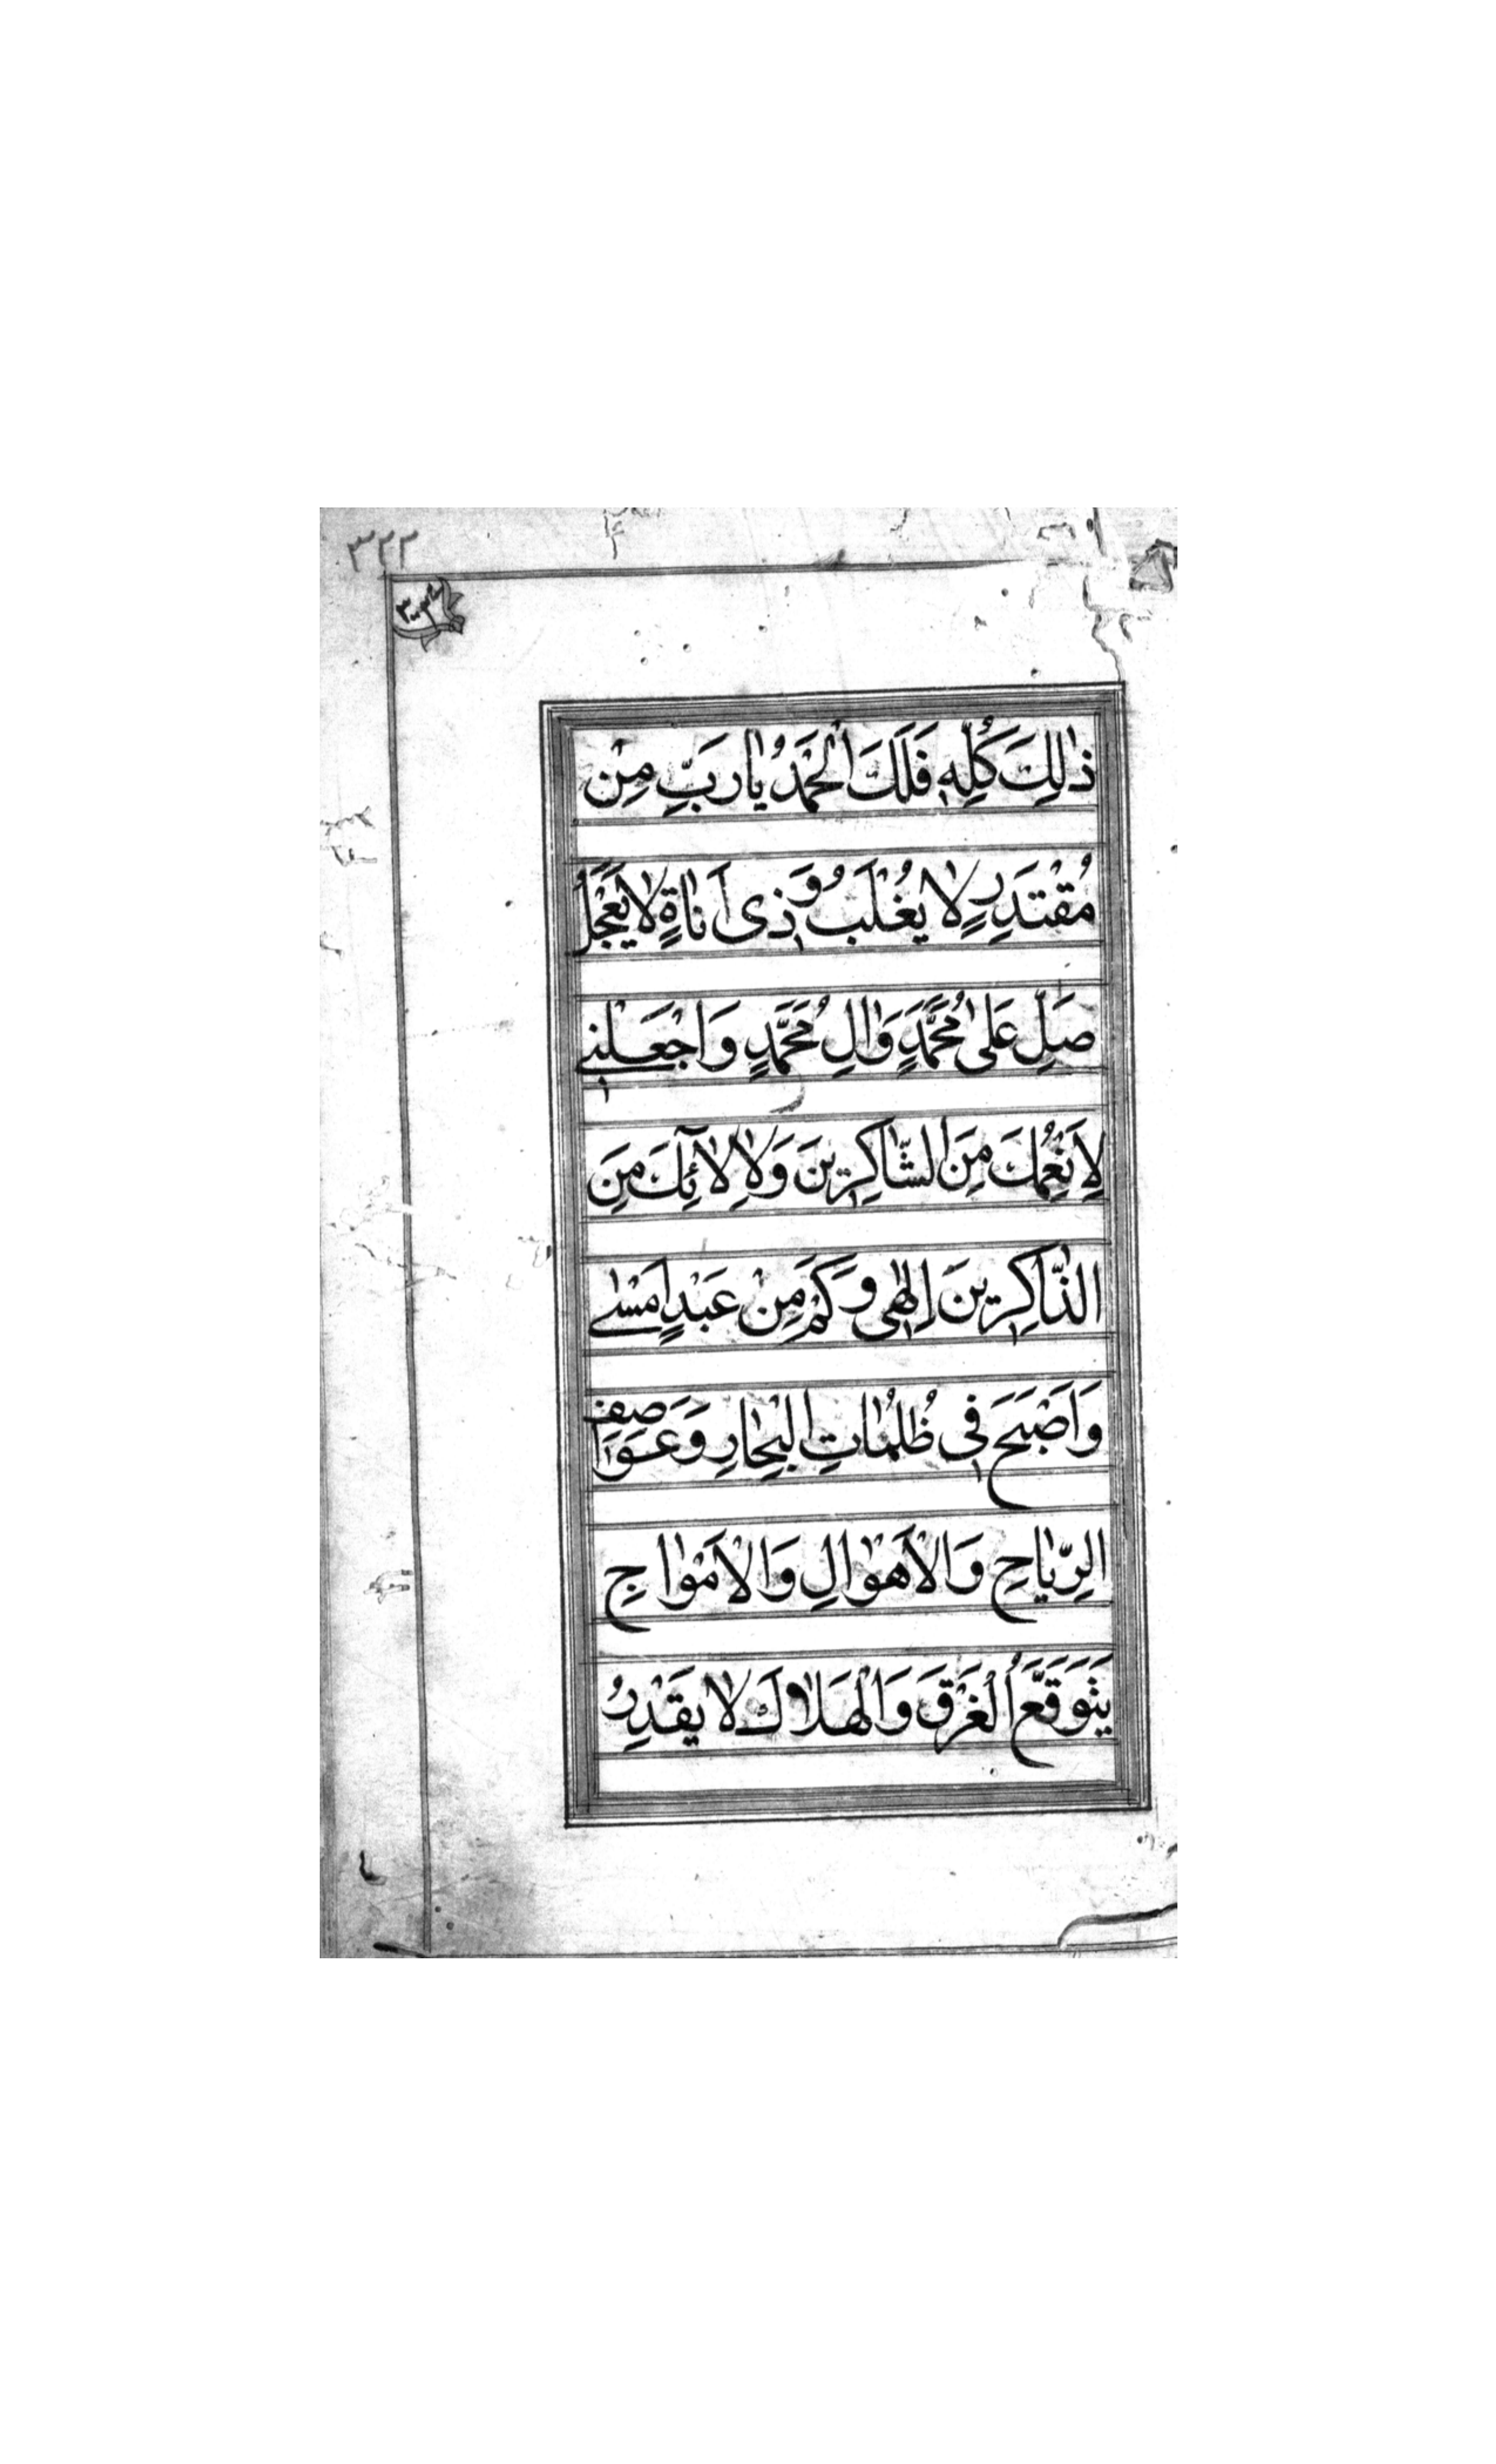 ٣٢٢
ذٰلِكَ كُلِّهِ فَلَكَ الْحَمْدُ يٰا رَبِّ مِنْ
مُقْتَدِرٍ لٰا يُغْلَبُ وَذِى اَنٰاةٍ لٰا يَعْجَلُ
صَلِّ عَلىٰ مُحَمَّدٍ وَاٰلِ مُحَمَّدٍ وَاجْعَلْنِى
لِاَنْعُمِكَ مِنَ الشّٰاكِرِينَ وَلِاٰلٰائِكَ مِنَ
الذّٰاكِرِينَ اِلٰهِى وَكَمْ مِنْ عَبْدٍ اَمْسٰى
وَاَصْبَحَ فِى ظُلُمٰاتِ الْبِحٰارِ وَعَوٰاصِفِ
الرِّيٰاحِ وَالْاَهْوٰالِ وَالْاَمْوٰاجِ
يَتَوَقَّعُ الْغَرَقَ وَالْهَلٰاكَ لٰا يَقْدِرُ